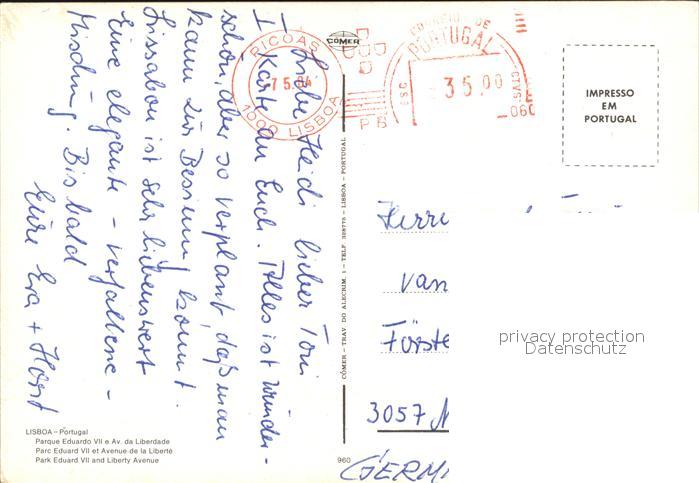 Liebe Heidi lieber Toni
I Karte an Euch. Alles ist wunder-
schön, aber so verplant, daß man
kaum zur Besinnung kommt.
Lissabon ist sehr liebenswert
Eine elegante - verfallene -
Mischung. Bis bald
Eure Eva + Horst
CÓMER
PICOAS
7 5.
1000 LISBOA
CORREIO DE
PORTUGAL
35.00
PB
IMPRESSO
EM
PORTUGAL
CÓMER — TRAV. DO ALECRIM, 1 — TELF. 328775 — LISBOA — PORTUGAL
Herrn
van
Förste
3057 N
GERMA
privacy protection
Datenschutz
LISBOA – Portugal
Parque Eduardo VII e Av. da Liberdade
Parc Eduard VII et Avenue de la Liberté
Park Eduard VII and Liberty Avenue
960